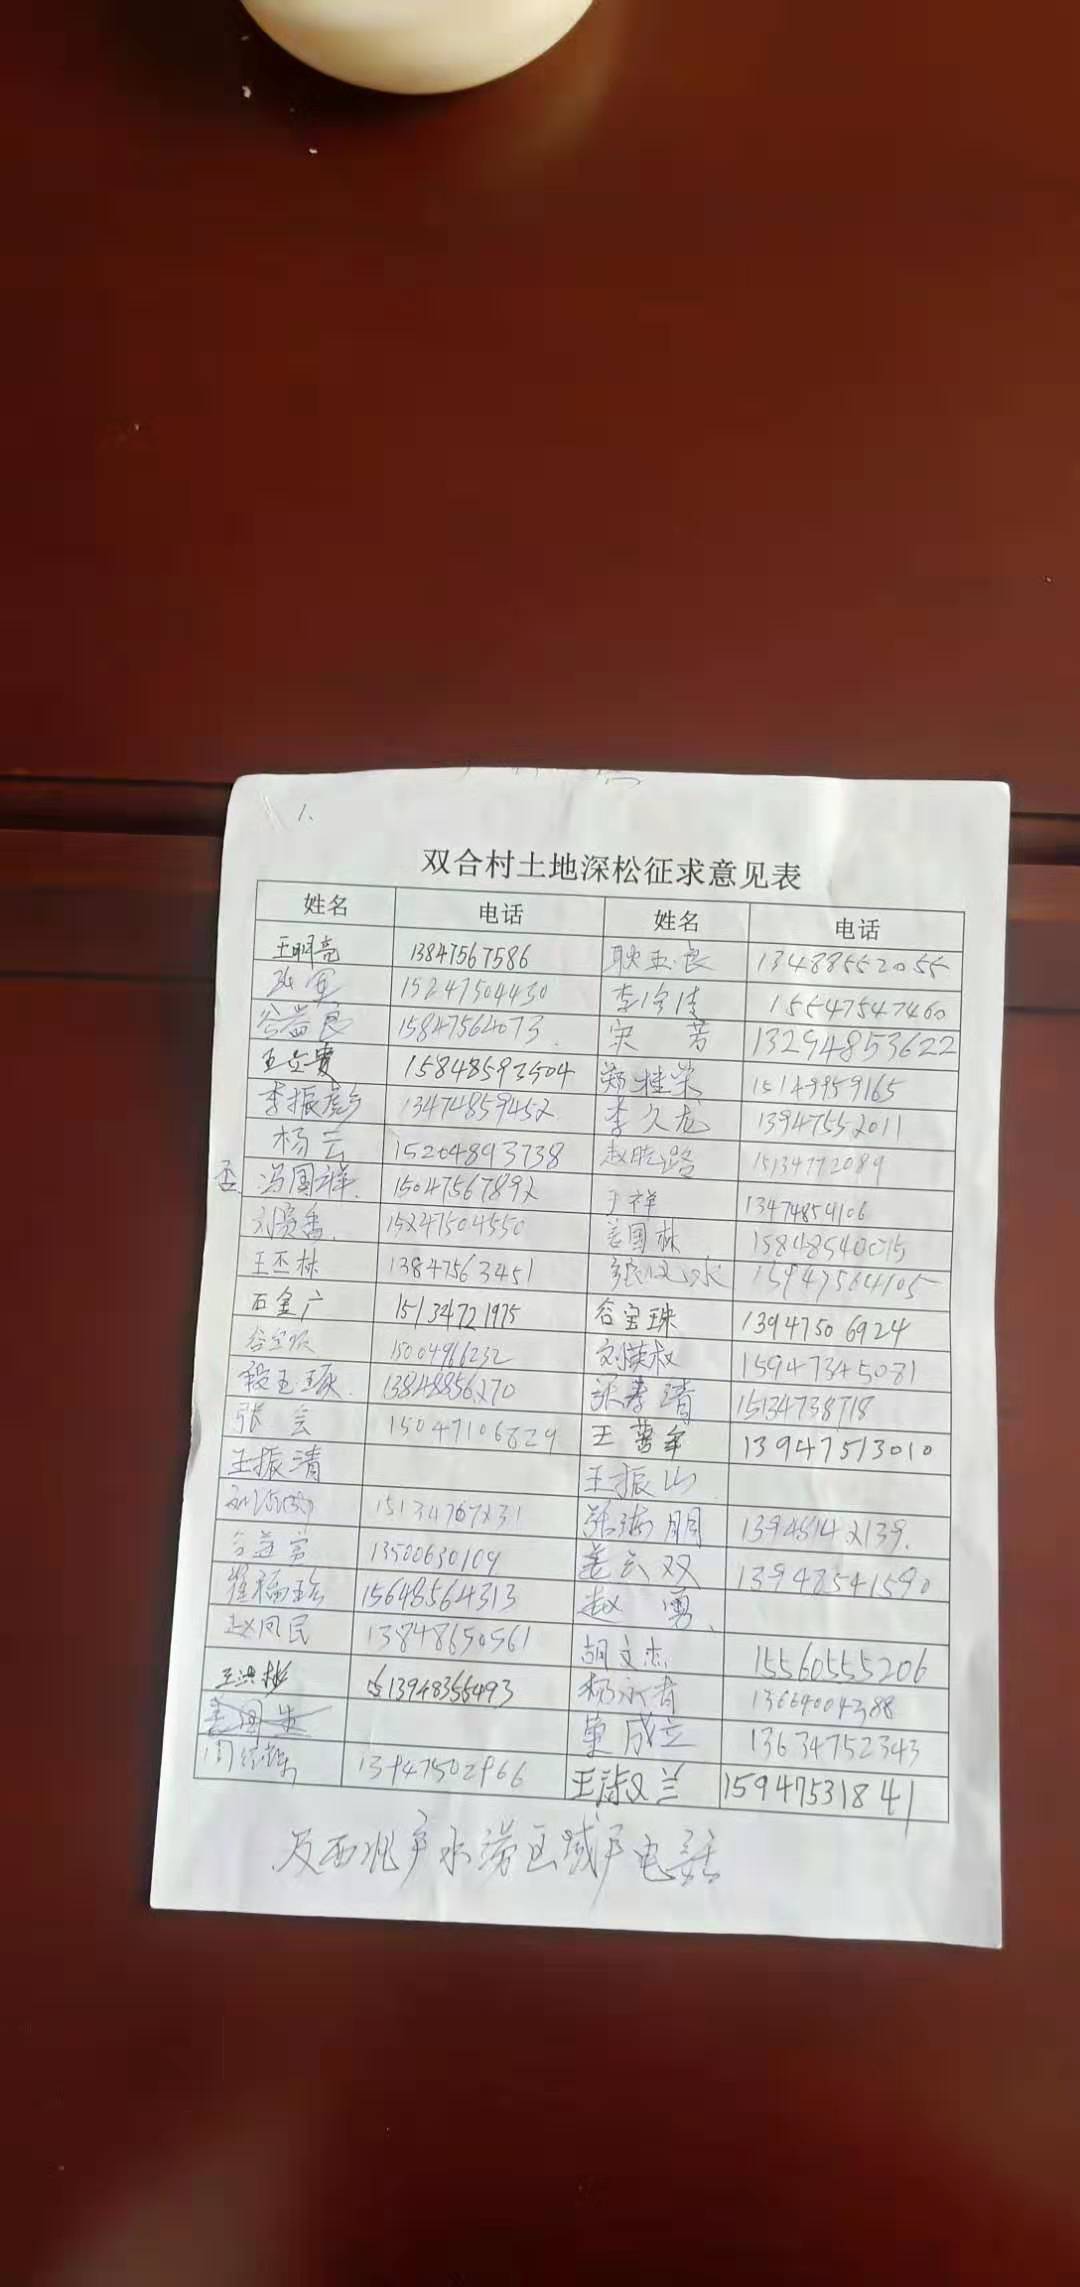 1.
双合村土地深松征求意见表
姓名 电话 姓名 电话
王明亮 13847567586 耿玉良 13488552055
张军 15247504430 李 15547547460
谷益良 15847564073 宋芳 13294853622
王立贵 15848593504 郑桂荣 15149959165
李振彪 13474859452 李久龙 13947552011
杨云 15204893738 赵晓路 15134772089
否 冯国祥 15047567892 于祥 13474854106
刘 15247504550 姜国林 15848540015
王玉林 13847563451 15947564105
石金广 15134721975 谷宝珠 13947506924
谷宝 15004966232 刘英权 15947345081
13848856270 张春清 15134738718
张会 15047106829 王 13947513010
王振清 王振山
15134767231 张海朋 13948142139
谷益富 13500630109 姜云双 13948541590
15648564313 赵勇
赵凤民 13848650561 胡文志 15560555206
王洪彬 13948355493 杨永青 13664004388
董成立 13634752343
13947502966 王淑兰 15947531841
及西北户水涝区域户电话